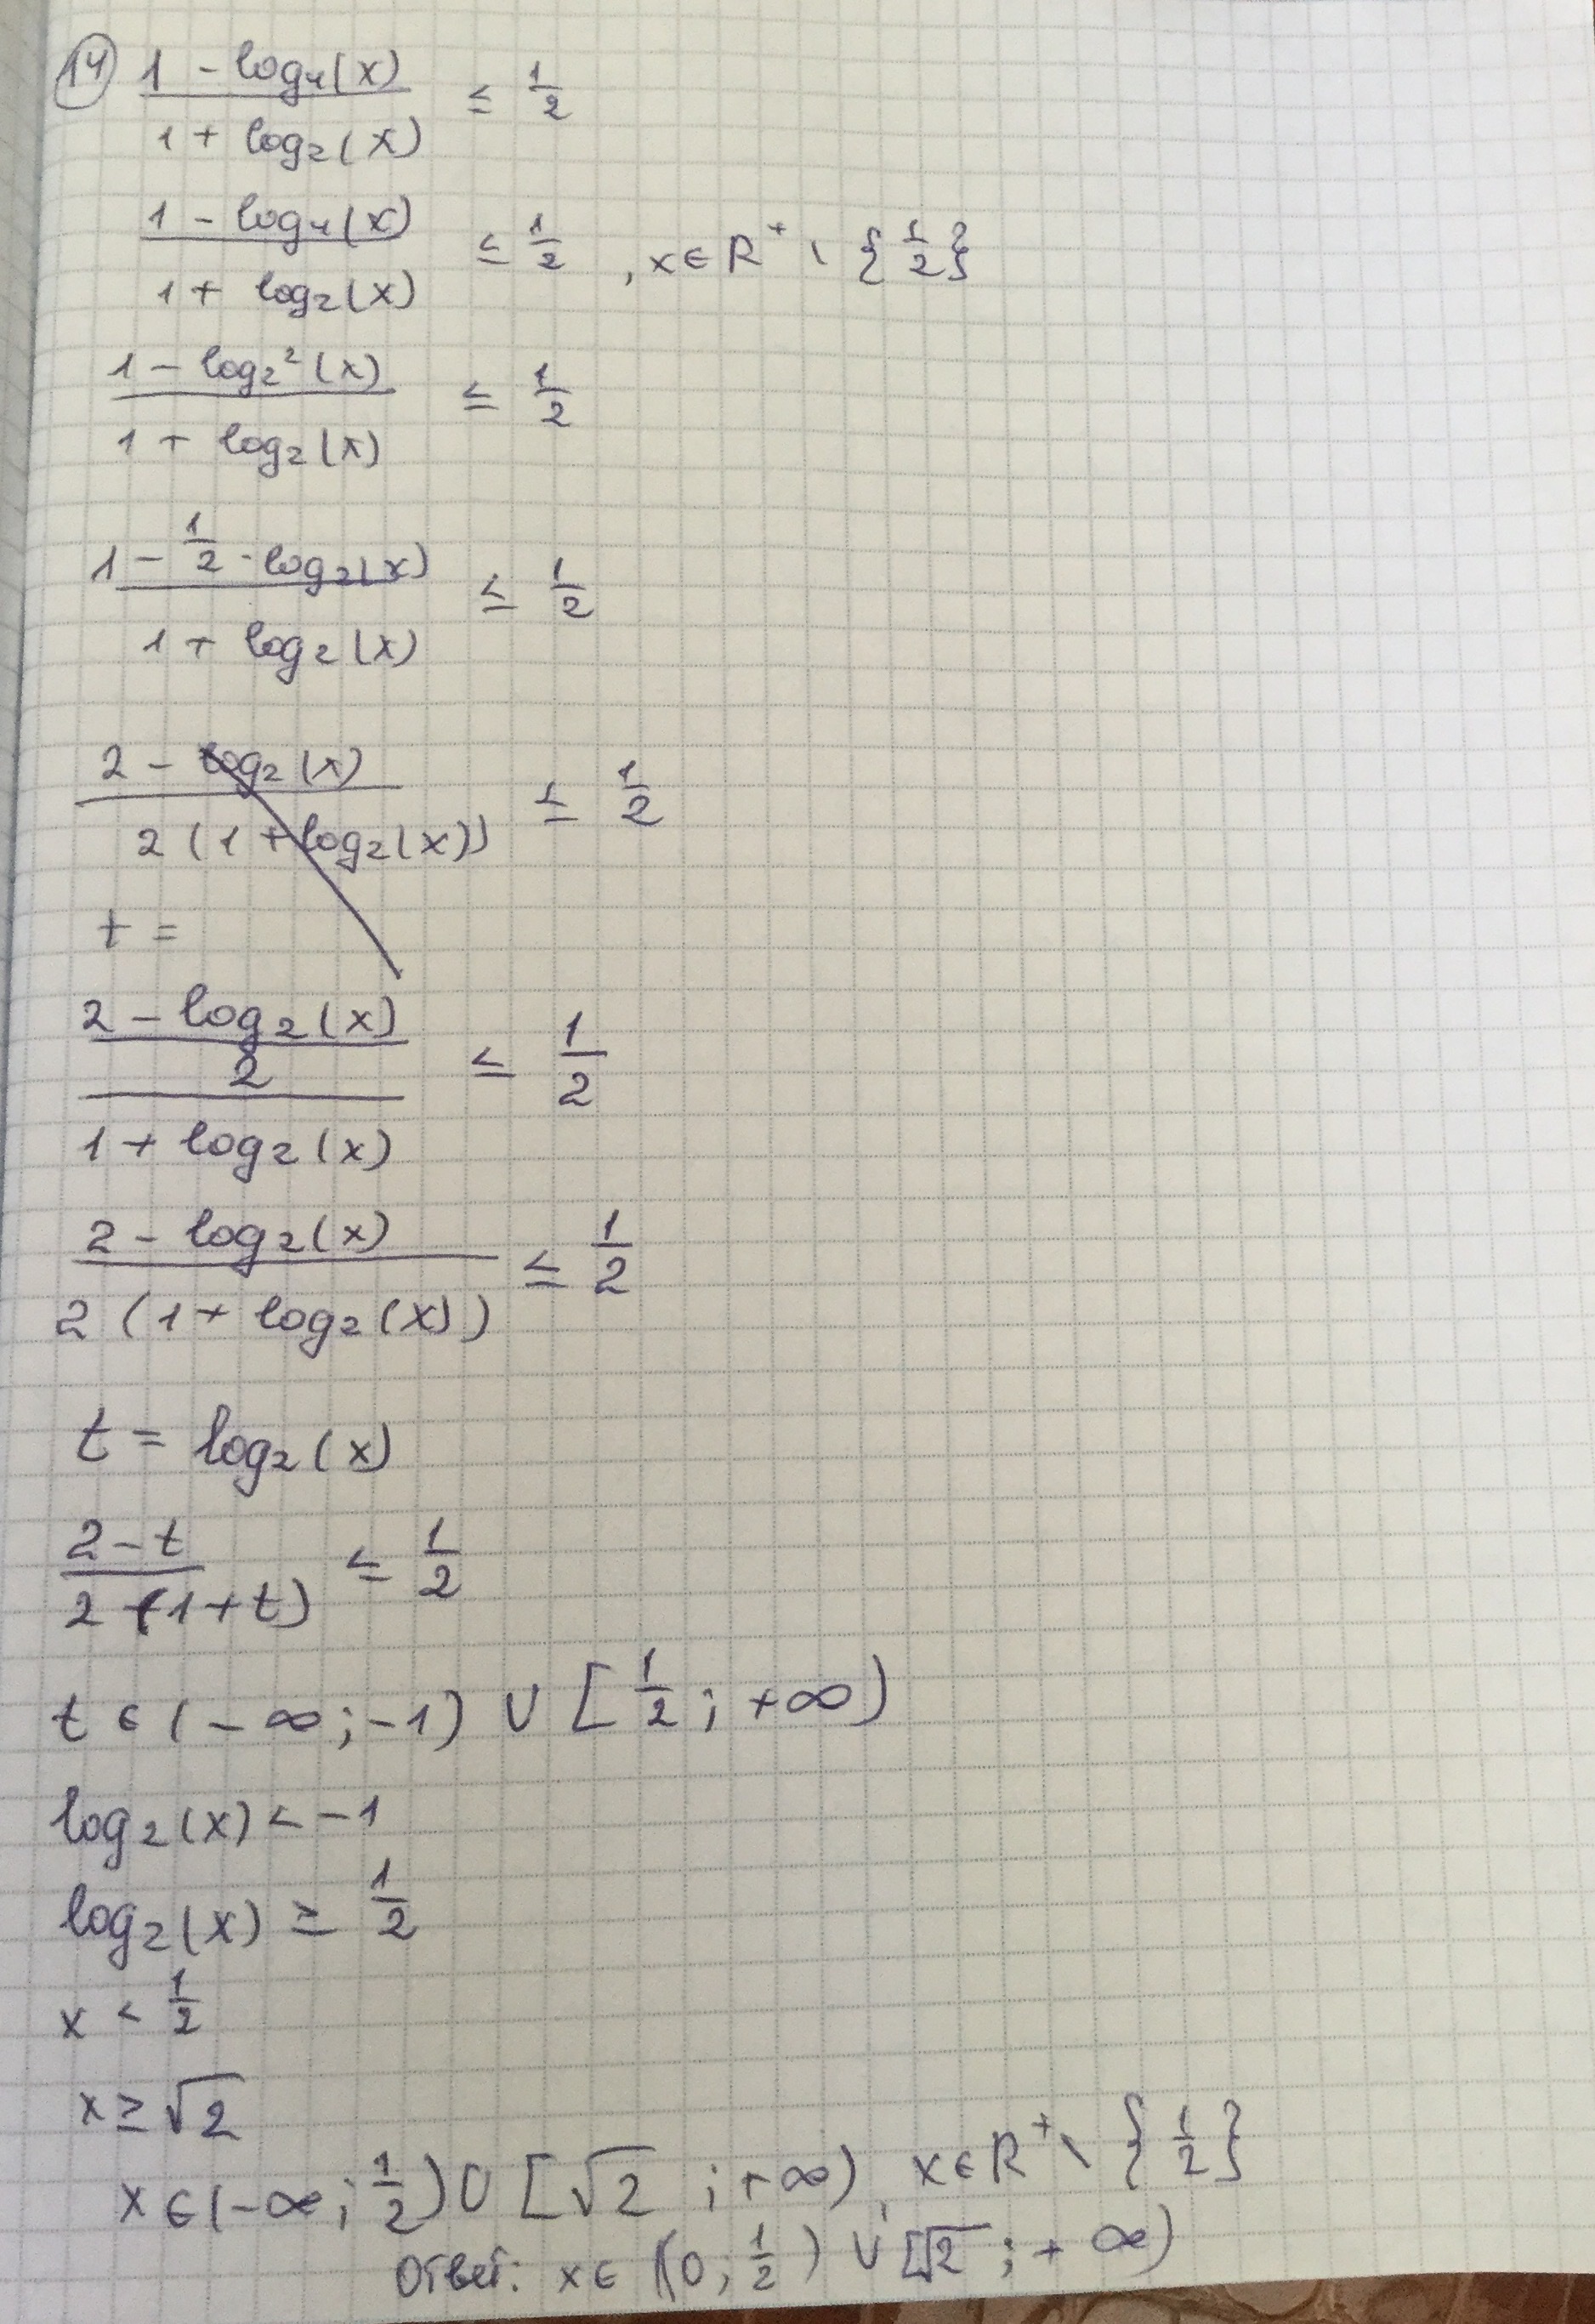 14 (1 - log₄(x)) / (1 + log₂(x)) ≤ 1/2
(1 - log₄(x)) / (1 + log₂(x)) ≤ 1/2 , x ∈ R⁺ \ {1/2}
(1 - log₂²(x)) / (1 + log₂(x)) ≤ 1/2
(1 - 1/2 · log₂(x)) / (1 + log₂(x)) ≤ 1/2
(2 - log₂(x)) / (2 (1 + log₂(x))) ≤ 1/2
t =
((2 - log₂(x)) / 2) / (1 + log₂(x)) ≤ 1/2
(2 - log₂(x)) / (2 (1 + log₂(x))) ≤ 1/2
t = log₂(x)
(2 - t) / (2 (1 + t)) ≤ 1/2
t ∈ (-∞; -1) ∪ [1/2; +∞)
log₂(x) < -1
log₂(x) ≥ 1/2
x < 1/2
x ≥ √2
x ∈ (-∞; 1/2) ∪ [√2 ; +∞), x ∈ R⁺ \ {1/2}
Ответ: x ∈ (0; 1/2) ∪ [√2 ; + ∞)